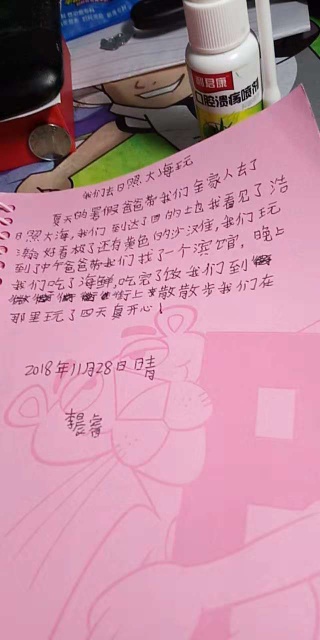 利君康
口腔溃疡喷剂
我们去日照大海玩
夏天的暑假爸爸带我们全家人去了
日照大海,我们到达了目的土也我看见了浩
好看极了还有黄色日的沙汉隹,我们玩
到中午爸爸带我们找了一个滨官,晚上
我们吃了海鲜,吃完了做我们到
街上散散步我们在
那里玩了四天真开心!
2018年11月28日晴